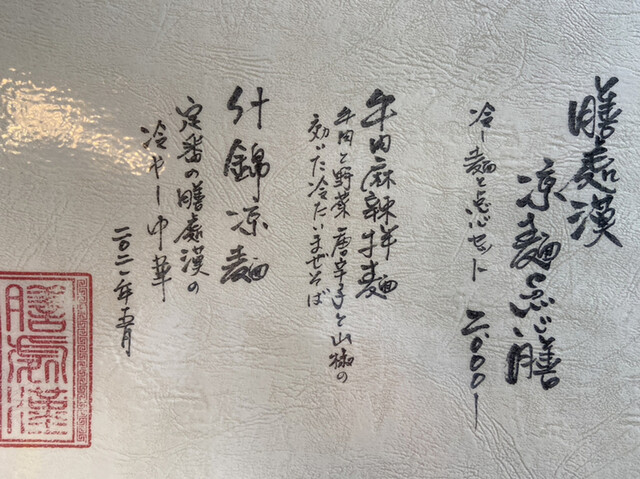 膳處漢
凉麺点心膳
冷し麺と点心セット 二、000ー
牛肉麻辣拌麺
牛肉と野菜 唐辛子と山椒の
効いた冷たいまぜそば
什錦凉麺
定番の膳處漢の
冷やし中華
二〇二一年五月
膳處漢